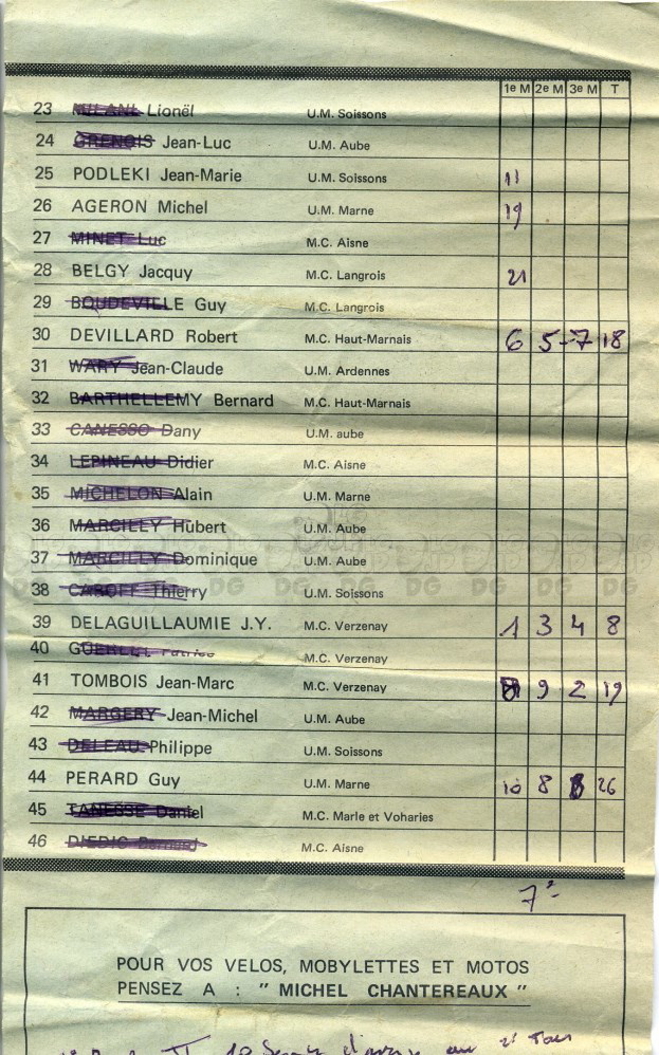 1e M 2e M 3e M T
23 MILANI Lionël U.M. Soissons
24 GRENOIS Jean-Luc U.M. Aube
25 PODLEKI Jean-Marie U.M. Soissons 11
26 AGERON Michel U.M. Marne 19
27 MINET Luc M.C. Aisne
28 BELGY Jacquy M.C. Langrois 21
29 BOUDEVILLE Guy M.C. Langrois
30 DEVILLARD Robert M.C. Haut-Marnais 6 5 7 18
31 WARY Jean-Claude U.M. Ardennes
32 BARTHELLEMY Bernard M.C. Haut-Marnais
33 CANESSO Dany U.M. aube
34 LEPINEAU Didier M.C. Aisne
35 MICHELON Alain U.M. Marne
36 MARCILLY Hubert U.M. Aube
37 MARCILLY Dominique U.M. Aube
38 Thierry U.M. Soissons
39 DELAGUILLAUMIE J.Y. M.C. Verzenay 1 3 4 8
40 M.C. Verzenay
41 TOMBOIS Jean-Marc M.C. Verzenay 8 9 2 19
42 MARGERY Jean-Michel U.M. Aube
43 DELEAU Philippe U.M. Soissons
44 PERARD Guy U.M. Marne 10 8 8 26
45 TANESSE Daniel M.C. Marle et Voharies
46 M.C. Aisne
7e
POUR VOS VELOS, MOBYLETTES ET MOTOS
PENSEZ A : " MICHEL CHANTEREAUX "